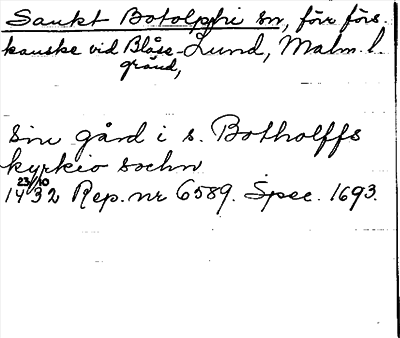 Sankt Botolphi sn, förr förs.
kanske vid Blåse-Lund, Malm. l.
gränd,
sin gård i s. Botholffs
kyrkio sochn
23/10
1432 Rep. nr 6589. Spec. 1693.